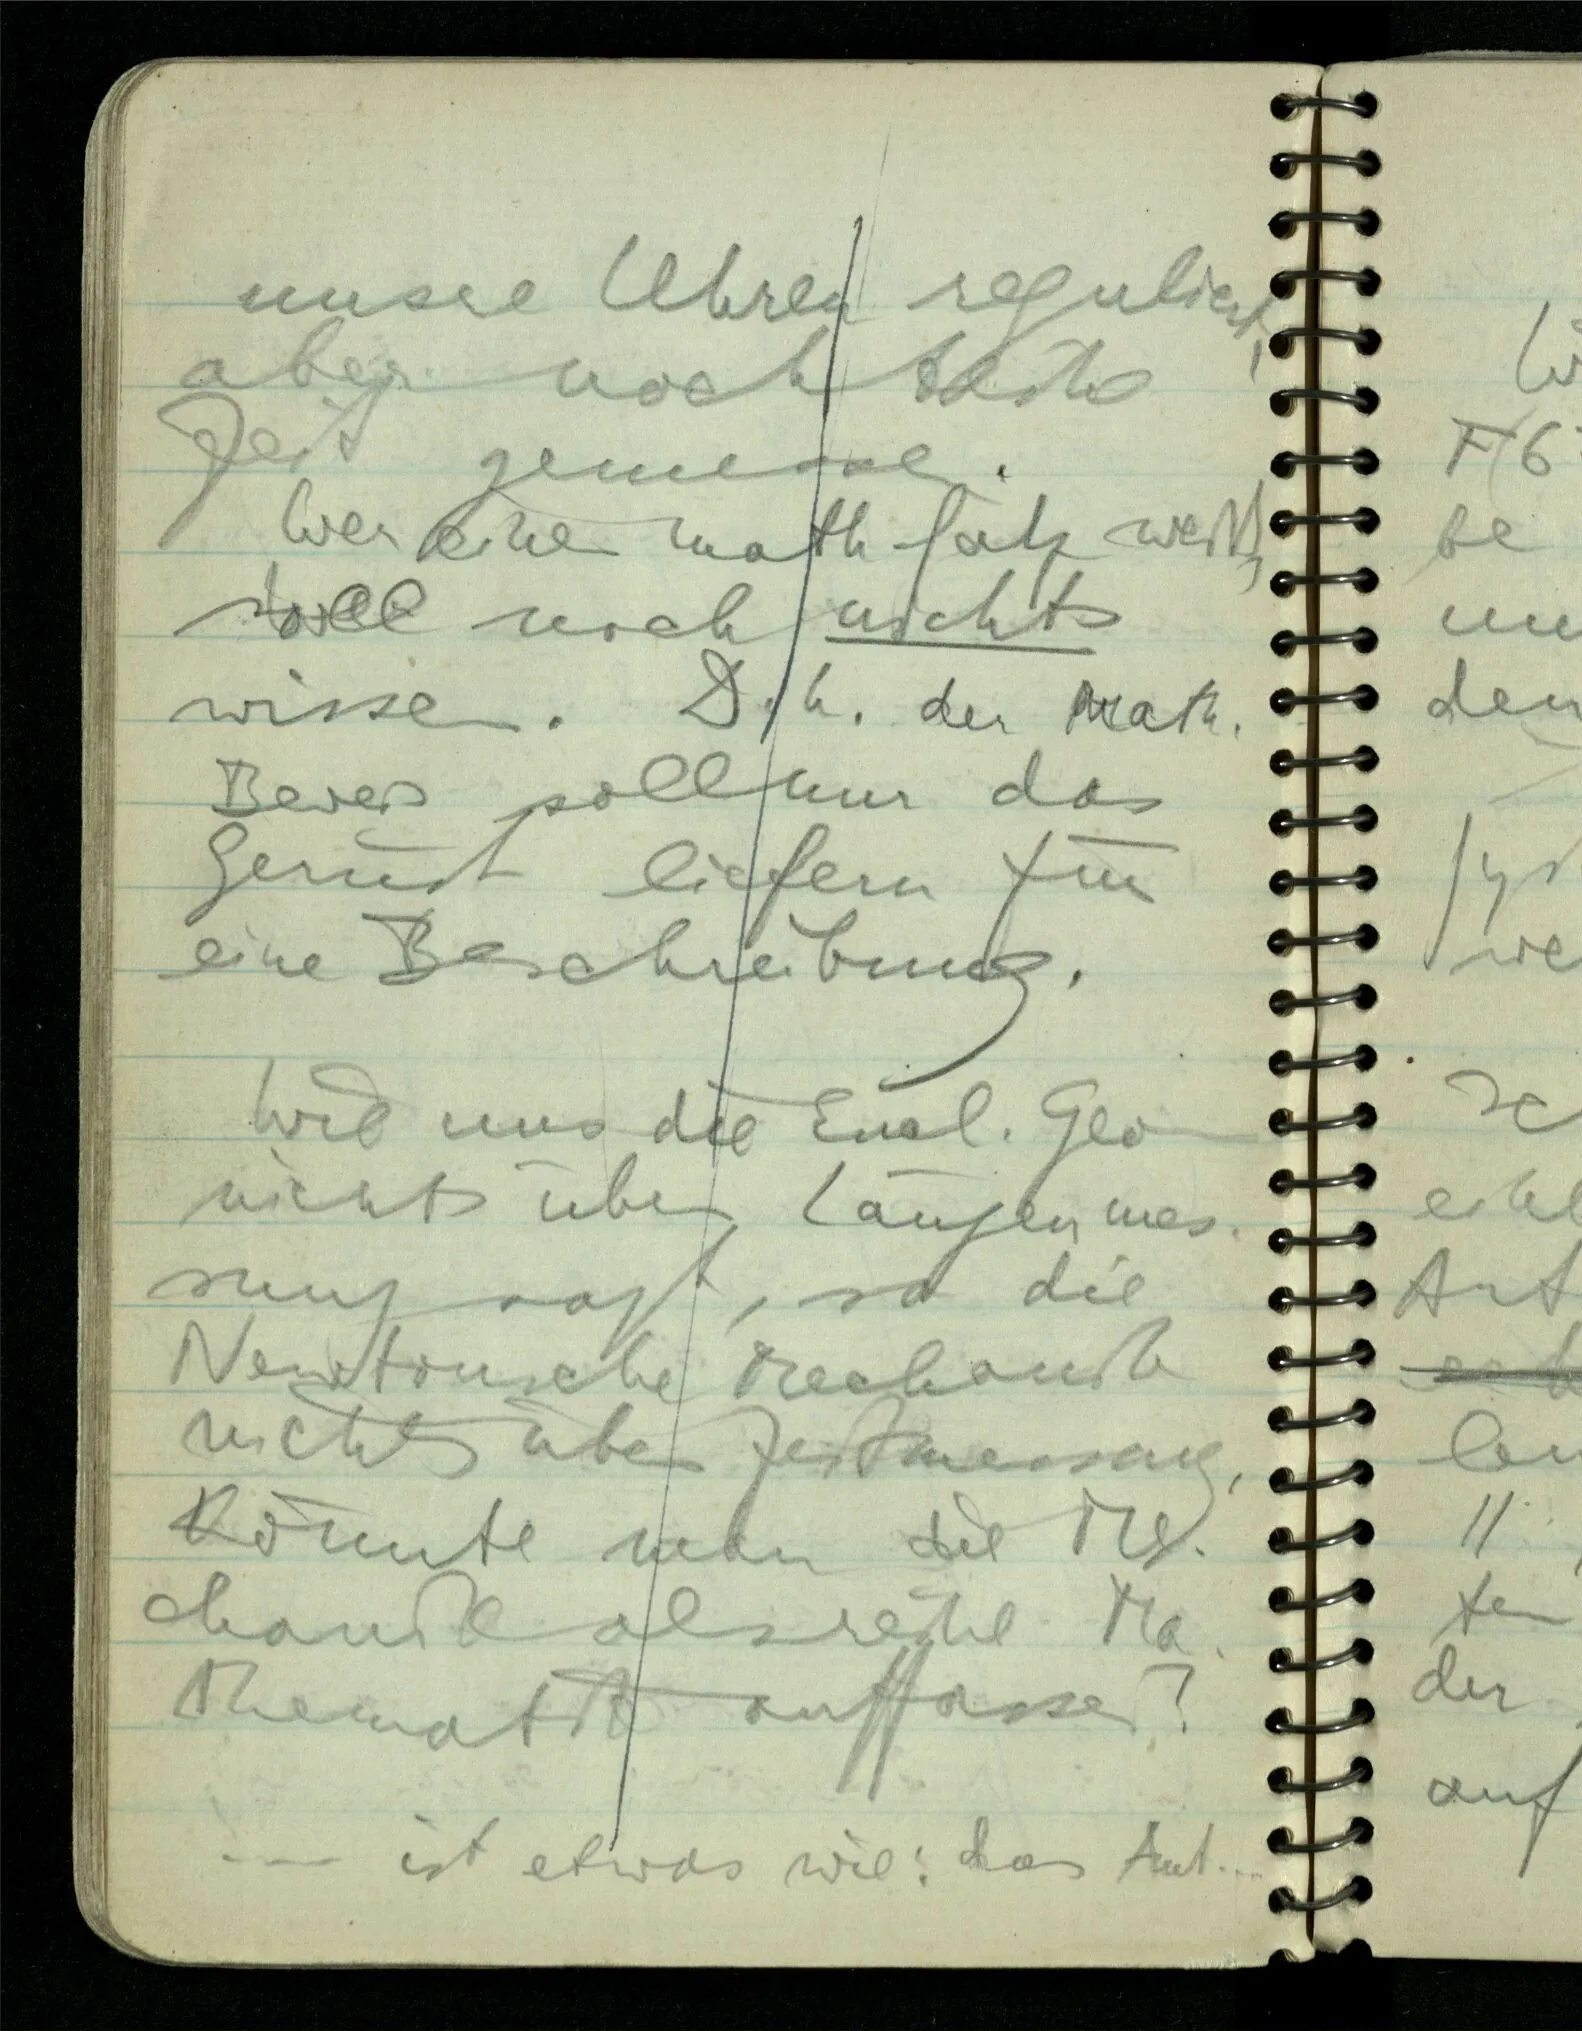 unsre Uhren reguliert,
aber noch keine
Zeit gemessen.
Wer einen math Satz weiß,
soll noch nichts
wissen. D.h. der Math.
Beweis soll nur das
Gerüst liefern für
eine Beschreibung.
Wie uns die Eucl. Geo
nichts über Längenmes-
sung sagt, so die
Newtonsche Mechanik
nichts über Zeitmessung,
Könnte man die Me-
chanik als reine Ma-
thematik auffassen?
--- ist etwas wie: das Amt...
W
F(6
be
um
den
Sys
we
Ich
Art
len
"
ten
der
auf